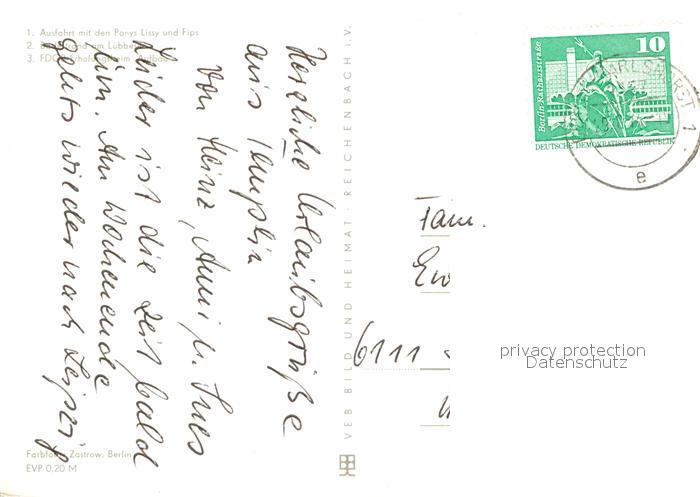 1. Ausfahrt mit den Ponys Lissy und Fips
2. am Lübbe
3. FDGB-Erholungsheim
Herzliche Urlaubsgrüße
aus Templin
von Heinz, Anni u. Ines
Leider ist die Zeit bald
um. Am Wochenende
geht's wieder nach Leipzig
Farbfotos: Zastrow, Berlin
EVP 0.20 M
VEB BILD UND HEIMAT · REICHENBACH i. V.
10
Berlin · Rathausstraße
DEUTSCHE DEMOKRATISCHE REPUBLIK
KARLSHORST 1
e
Fam.
6111
privacy protection
Datenschutz